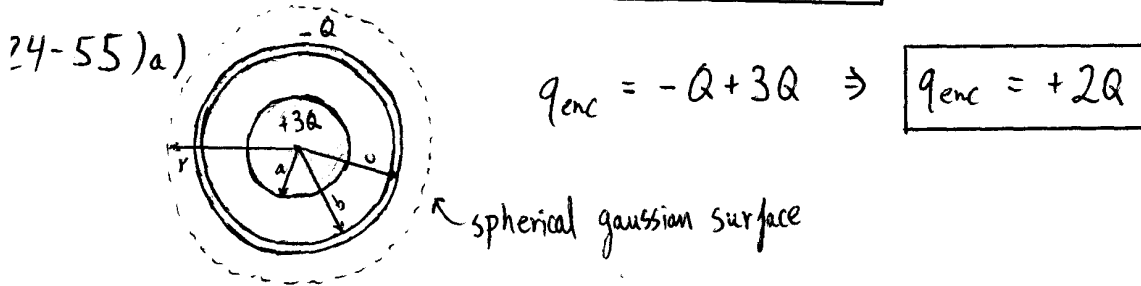 24-55)a)
-Q
+3Q
r
a
b
c
q_enc = -Q+3Q ⇒ q_enc = +2Q
spherical gaussian surface